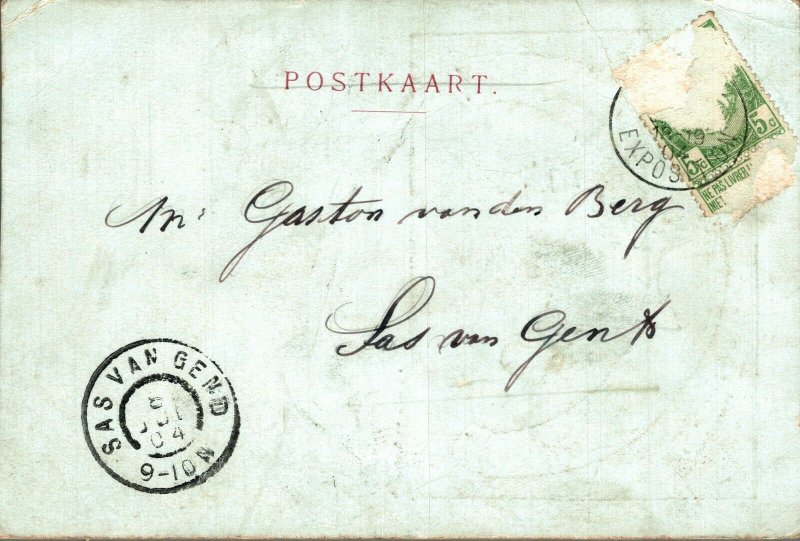 POSTKAART.
5c
5c
EXPOS
NE PAS LIVRER
NIET
Mr Gaston van den Berg
Sas van Gent
SAS VAN GEND
JUL
04
9-10 N